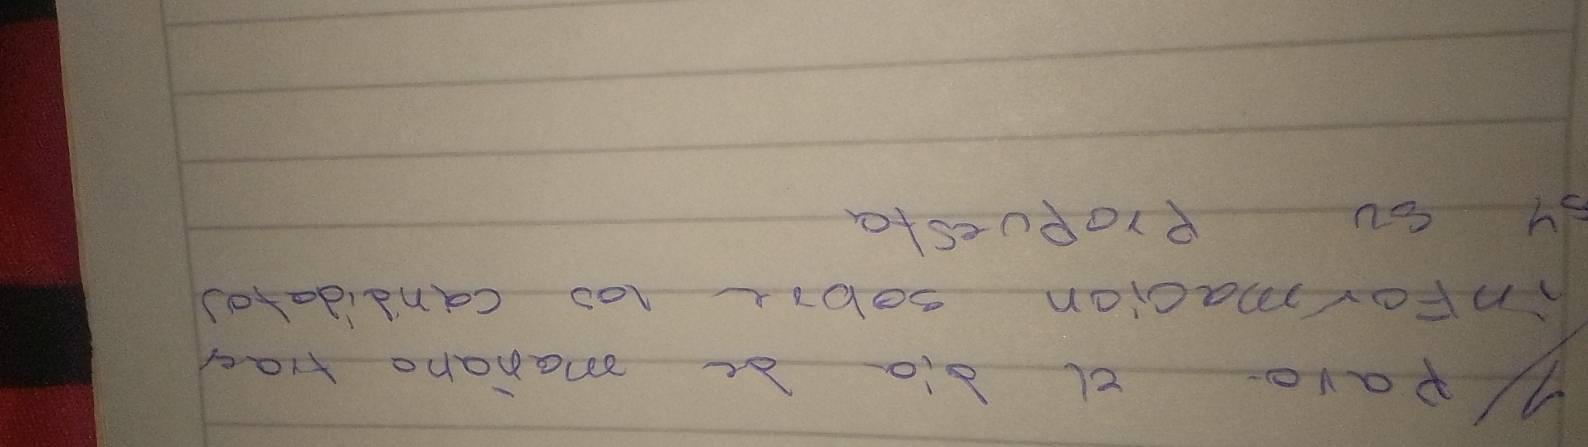 1/ Para el dia de mañana traer
informacion sobre los candidatos
y su propuesta